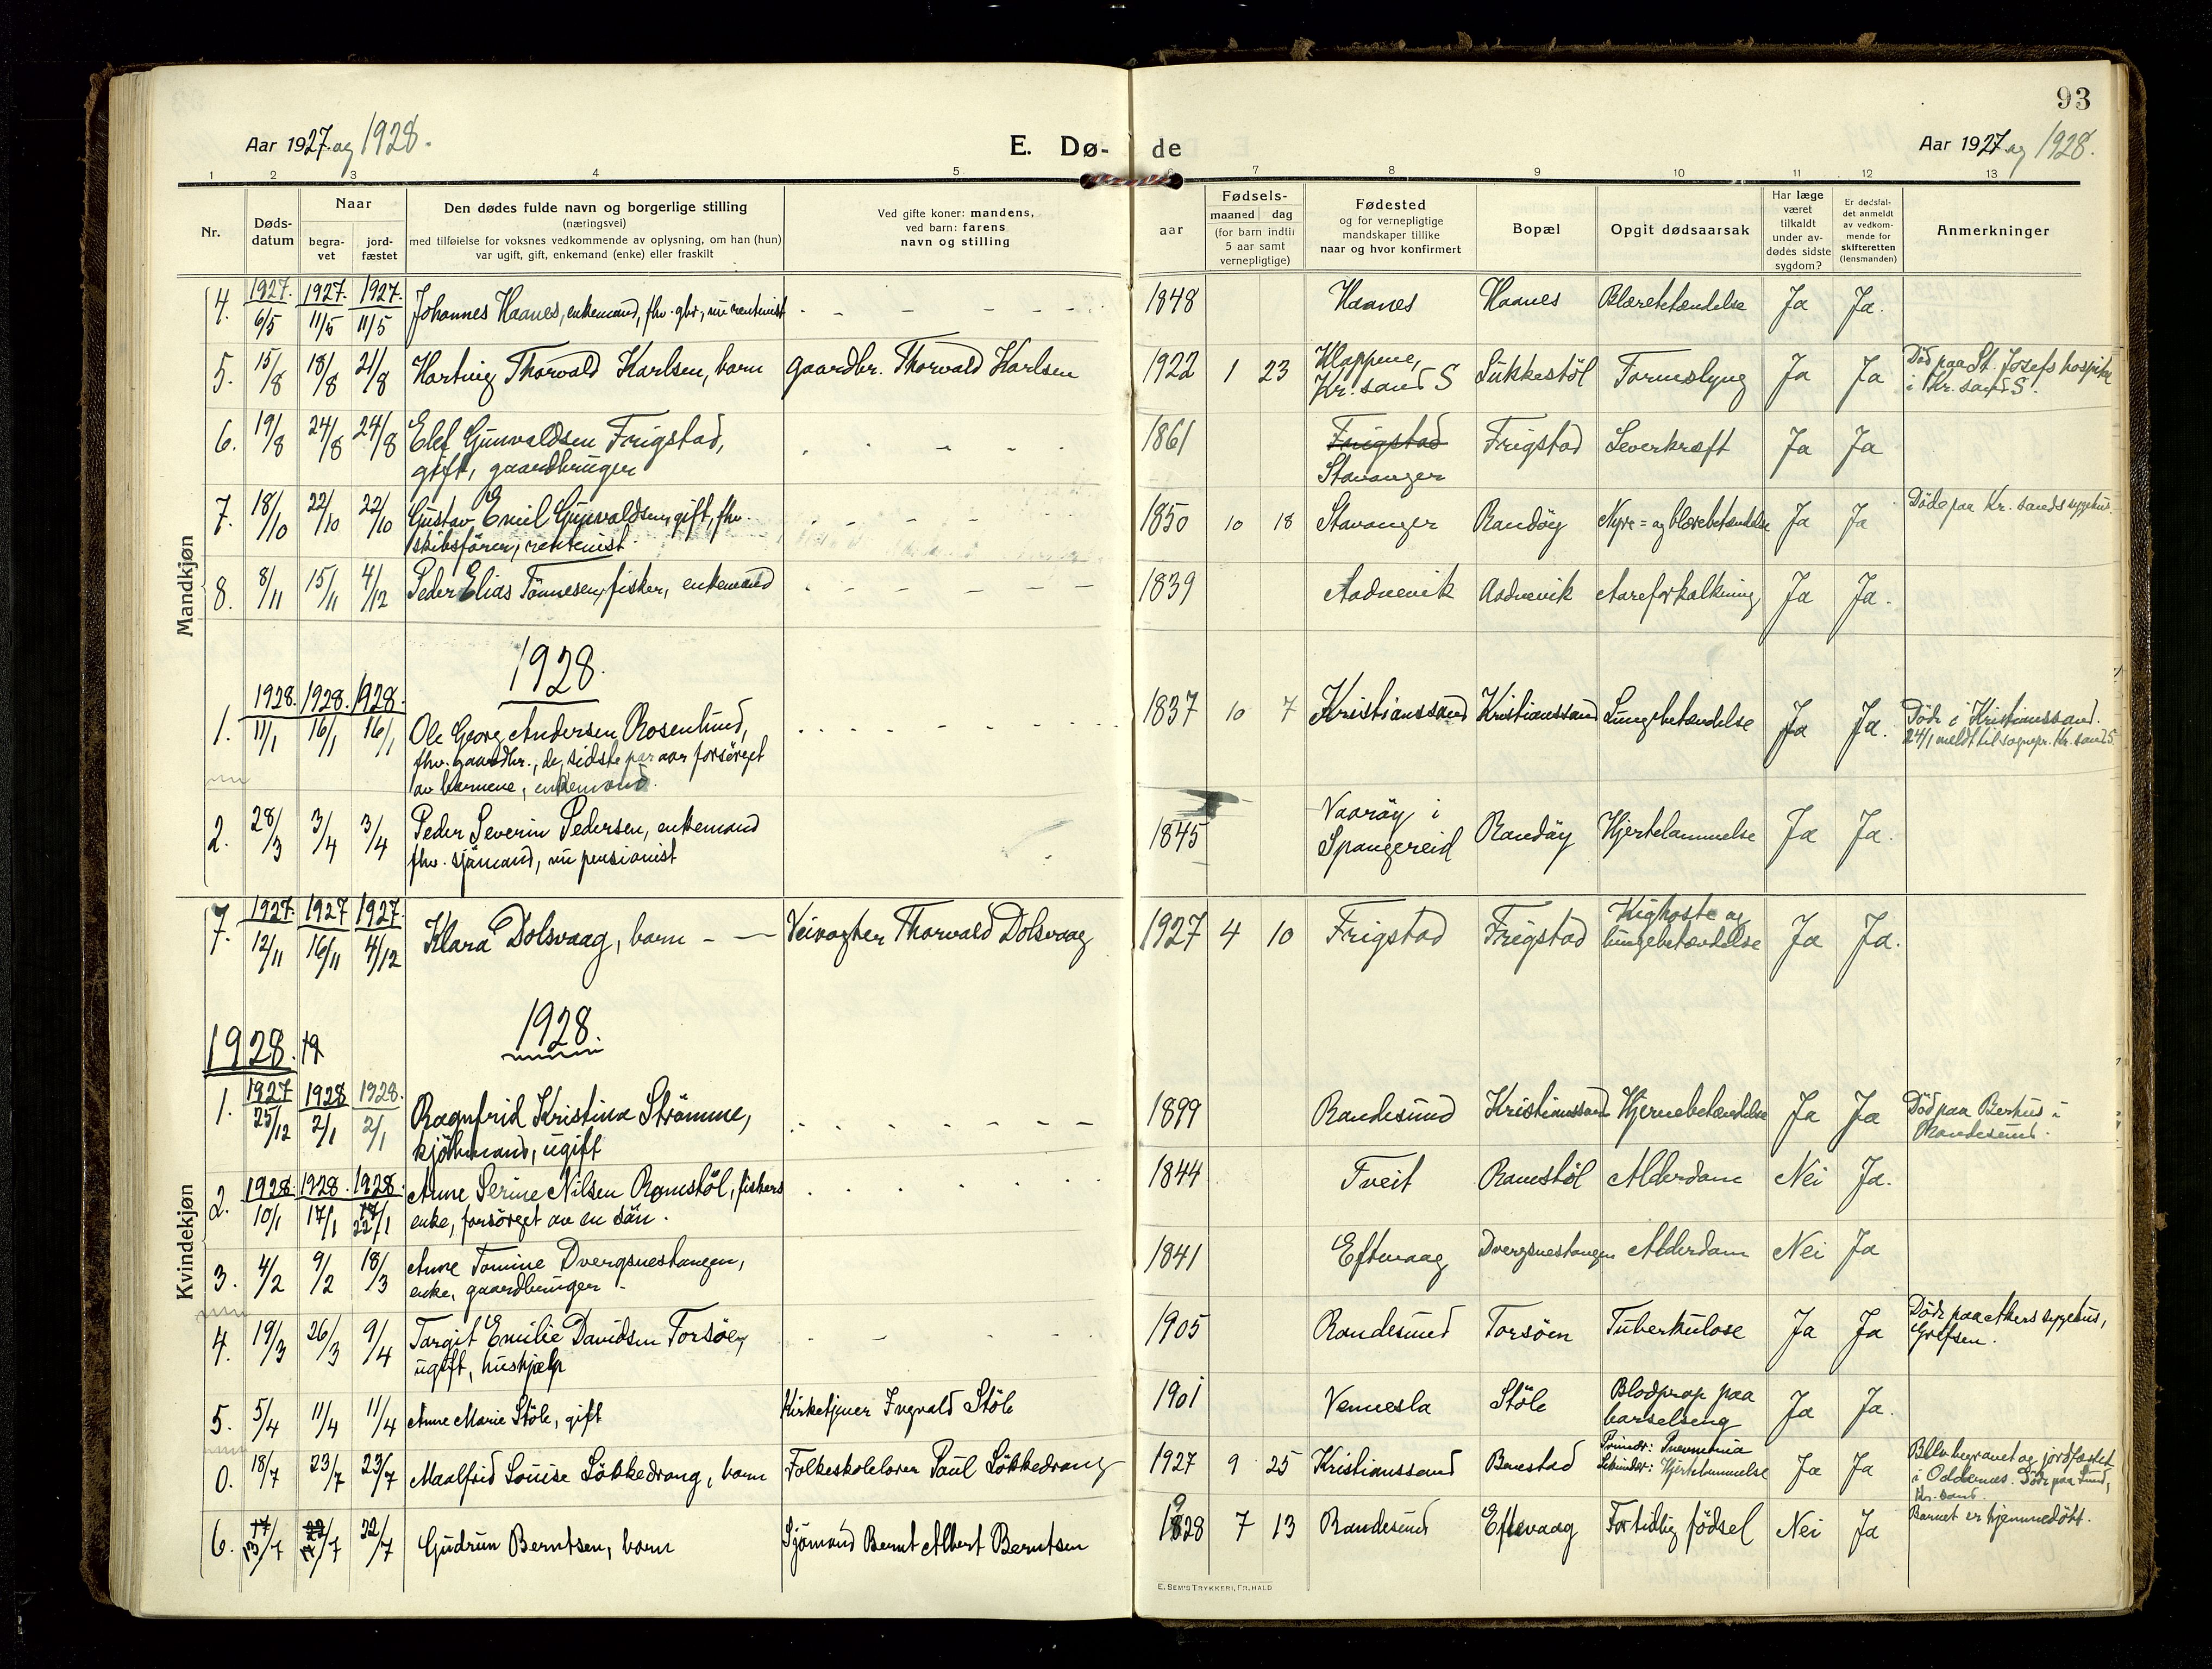 93
Aar 1927 og 1928.
E. Dø- de
Aar 1927 og 1928.
1 2 3 4 5 6 7 8 9 10 11 12 13
Nr.
Døds-
datum
Naar
begra-
vet
jord-
fæstet
Den dødes fulde navn og borgerlige stilling
(næringsvei)
med tilføielse for voksnes vedkommende av oplysning, om han (hun)
var ugift, gift, enkemand (enke) eller fraskilt
Ved gifte koner: mandens,
ved barn: farens
navn og stilling
Fødsels-
aar
maaned dag
(for barn indtil
5 aar samt
vernepligtige)
Fødested
og for vernepligtige
mandskaper tillike
naar og hvor konfirmert
Bopæl
Opgit dødsaarsak
Har læge
været
tilkaldt
under av-
dødes sidste
sygdom?
Er dødsfal-
det anmeldt
av vedkom-
mende for
skifteretten
(lensmanden)
Anmerkninger
Mandkjøn
1927. 1927. 1927.
4. 6/5 11/5 11/5 Johannes Haanes, enkemand, fhv. gbr, nu rentenist 1848 Haanes Haanes Blærebetændelse Ja Ja.
5. 15/8 18/8 21/8 Hartvig Thorvald Karlsen, barn Gaardbr. Thorvald Karlsen 1922 1 23 Kloppene,
Kr. sand S Sukkestöl Tarmslyng Ja Ja Död paa St. Josefs hospital
i Kr. sand S.
6. 19/8 24/8 24/8 Elef Gunvaldsen Frigstad,
gift, gaardbruger 1861 Frigstad
Stavanger Frigstad Leverkræft Ja Ja
7. 18/10 22/10 22/10 Gustav Emil Gunvaldsen, gift, fhv.
skibsförer, rentenist 1850 10 18 Stavanger Randöy Nyre= og blærebetændelse Ja Ja Döde paa Kr. sands sygehus.
8. 8/11 15/11 4/12 Peder Elias Tönnesen, fisker, enkemand 1839 Aadnevik Aadnevik Aareforkalkning Ja Ja.
1928.
1928. 1928. 1928.
1. 11/1 16/1 16/1 Ole Georg Andersen Rosenlund,
fhv. gaardbr., de sidste par aar forsörget
av barnene, enkemand. 1837 10 7 Kristianssand Kristianssand Lungebetændelse Ja Ja. Döde i Kristianssand.
24/1 meldt til sognepr. Kr. sand S.
2. 28/3 3/4 3/4 Peder Severin Pedersen, enkemand
fhv. sjömand, nu pensionist 1845 Vaaröy i
Spangereid Randöy Hjertelammelse Ja Ja.
Kvindekjøn
1927. 1927 1927.
7. 12/11 16/11 4/12 Klara Dolsvaag, barn Veivogter Thorvald Dolsvaag 1927 4 10 Frigstad Frigstad Kighoste og
lungebetændelse Ja Ja.
1928.
1928.
1927 1928 1928.
1. 25/12 2/1 2/1 Ragnfrid Kristina Strömme,
kjöbmand, ugift 1899 Randesund Kristianssand Hjernebetændelse Ja Ja Död paa Berhus i
Randesund.
1928. 1928. 1928.
2. 10/1 17/1 22/1 Anne Serine Nilsen Ramstöl, fiskers
enke, forsörget av en sön. 1844 Tveit Ramstöl Alderdom Nei Ja.
3. 4/2 9/2 18/3 Anne Tomine Dvergsnestangen,
enke, gaardbruger 1841 Eftevaag Dvergsnestangen Alderdom Nei Ja
4. 19/3 26/3 9/4 Targit Emilie Davidsen Torsöen,
ugift, hushjælp 1905 Randesund Torsöen Tuberkulose Ja Ja Döde paa Akers sygehus,
Grefsen.
5. 5/4 11/4 11/4 Anne Marie Stöle, gift Kirketjener Ingvald Stöle 1901 Vennesla Stöle Blodprop paa
barselseng Ja Ja.
0. 18/7 23/7 23/7 Maalfrid Louise Lökkedrang, barn Folkeskolelærer Paul Lökkedrang 1927 9 25 Kristianssand Benestad Primær: Pneumonia
Sekundær: Hjertelammelse Ja Ja Blev begravet og jordfæstet
i Oddernes. Döde paa Lund,
Kr. sand.
6. 13/7 22/7 Gudrun Berntsen, barn Sjömand Bernt Albert Berntsen 1928 7 13 Randesund Eftevaag For tidlig födsel Nei Ja Barnet er hjemmedöbt.
E. SEM'S TRYKKERI, FR.HALD